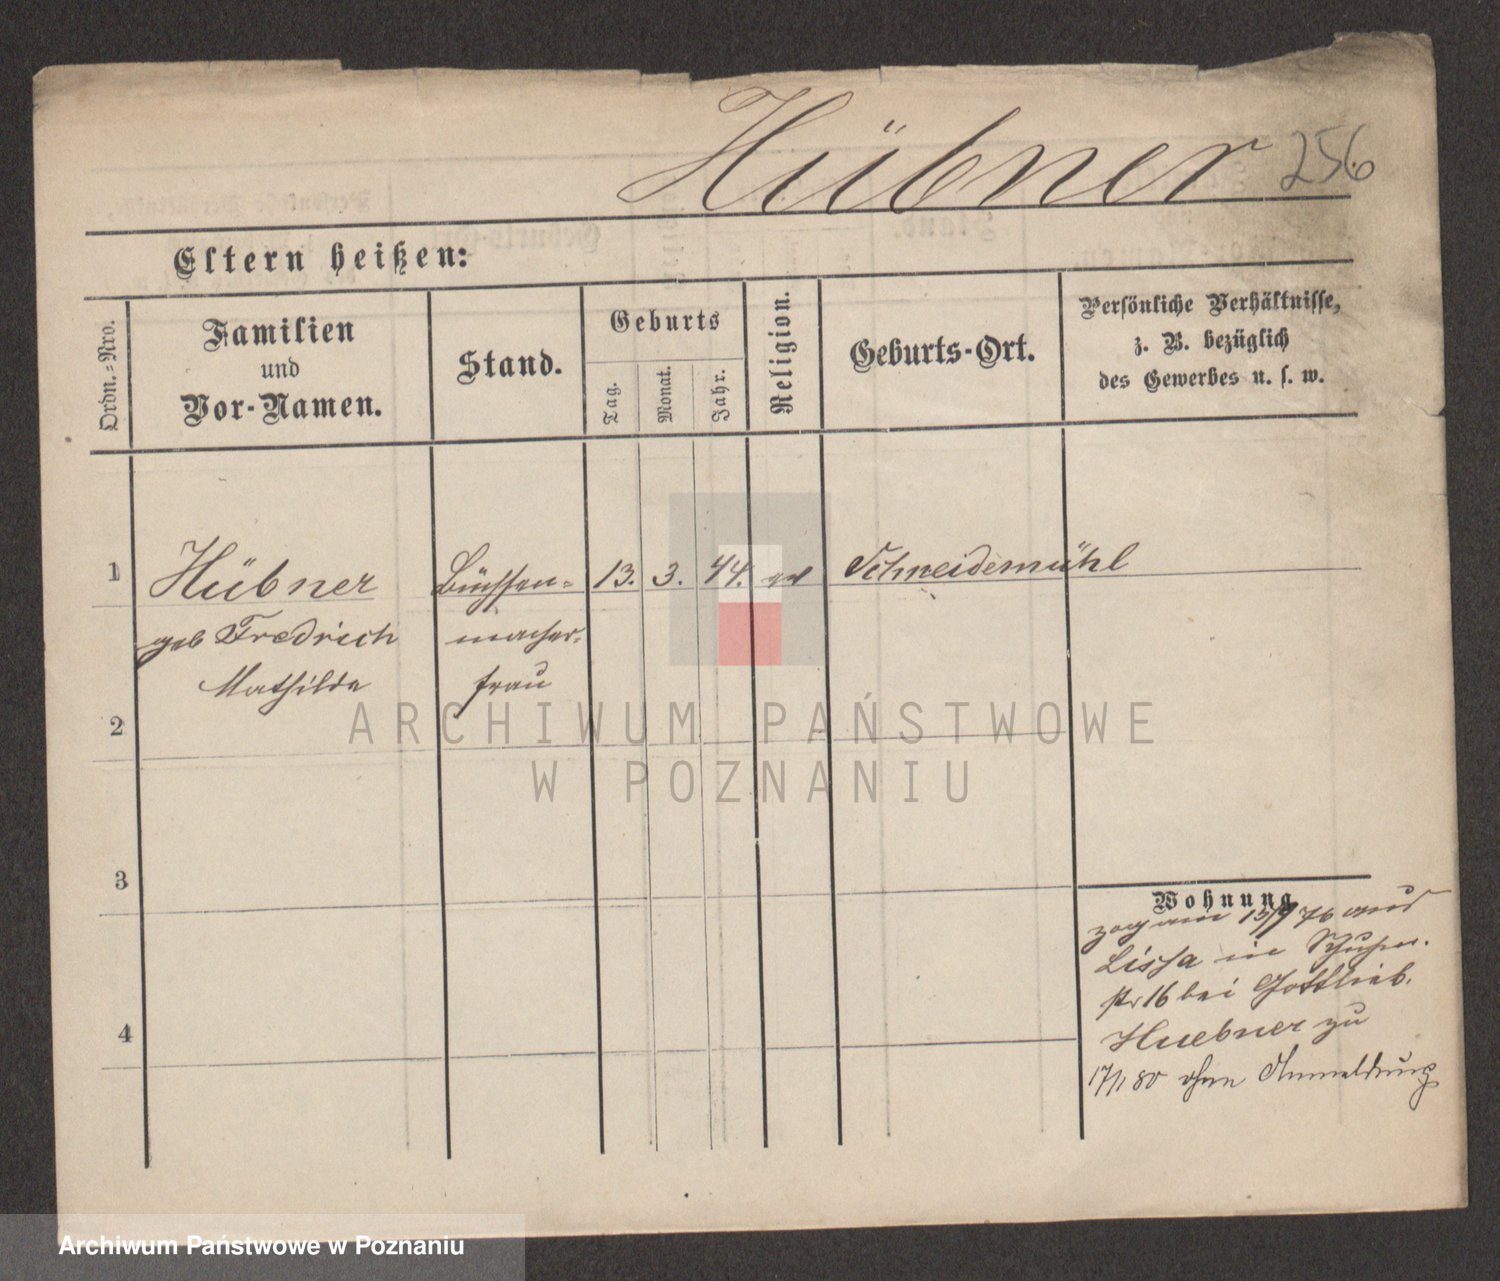 Hübner 256
Eltern heißen:
Ordn.=Nro.
Familien
und
Vor-Namen.
Stand.
Geburts
Tag.
Monat.
Jahr.
Religion.
Geburts-Ort.
Persönliche Verhältnisse,
z. B. bezüglich
des Gewerbes u. s. w.
1 Hübner Büchsen= 13. 3. 44. ev Schneidemühl
geb Fredrich macher-
Mathilde frau
2
3
4
Wohnung
zog am 13/9 76 aus
Lissa in Schuhm.
str 16 bei Gottlieb.
Huebner zu
17/1 80 ohne Anmeldung
ARCHIWUM PAŃSTWOWE
W POZNANIU
Archiwum Państwowe w Poznaniu